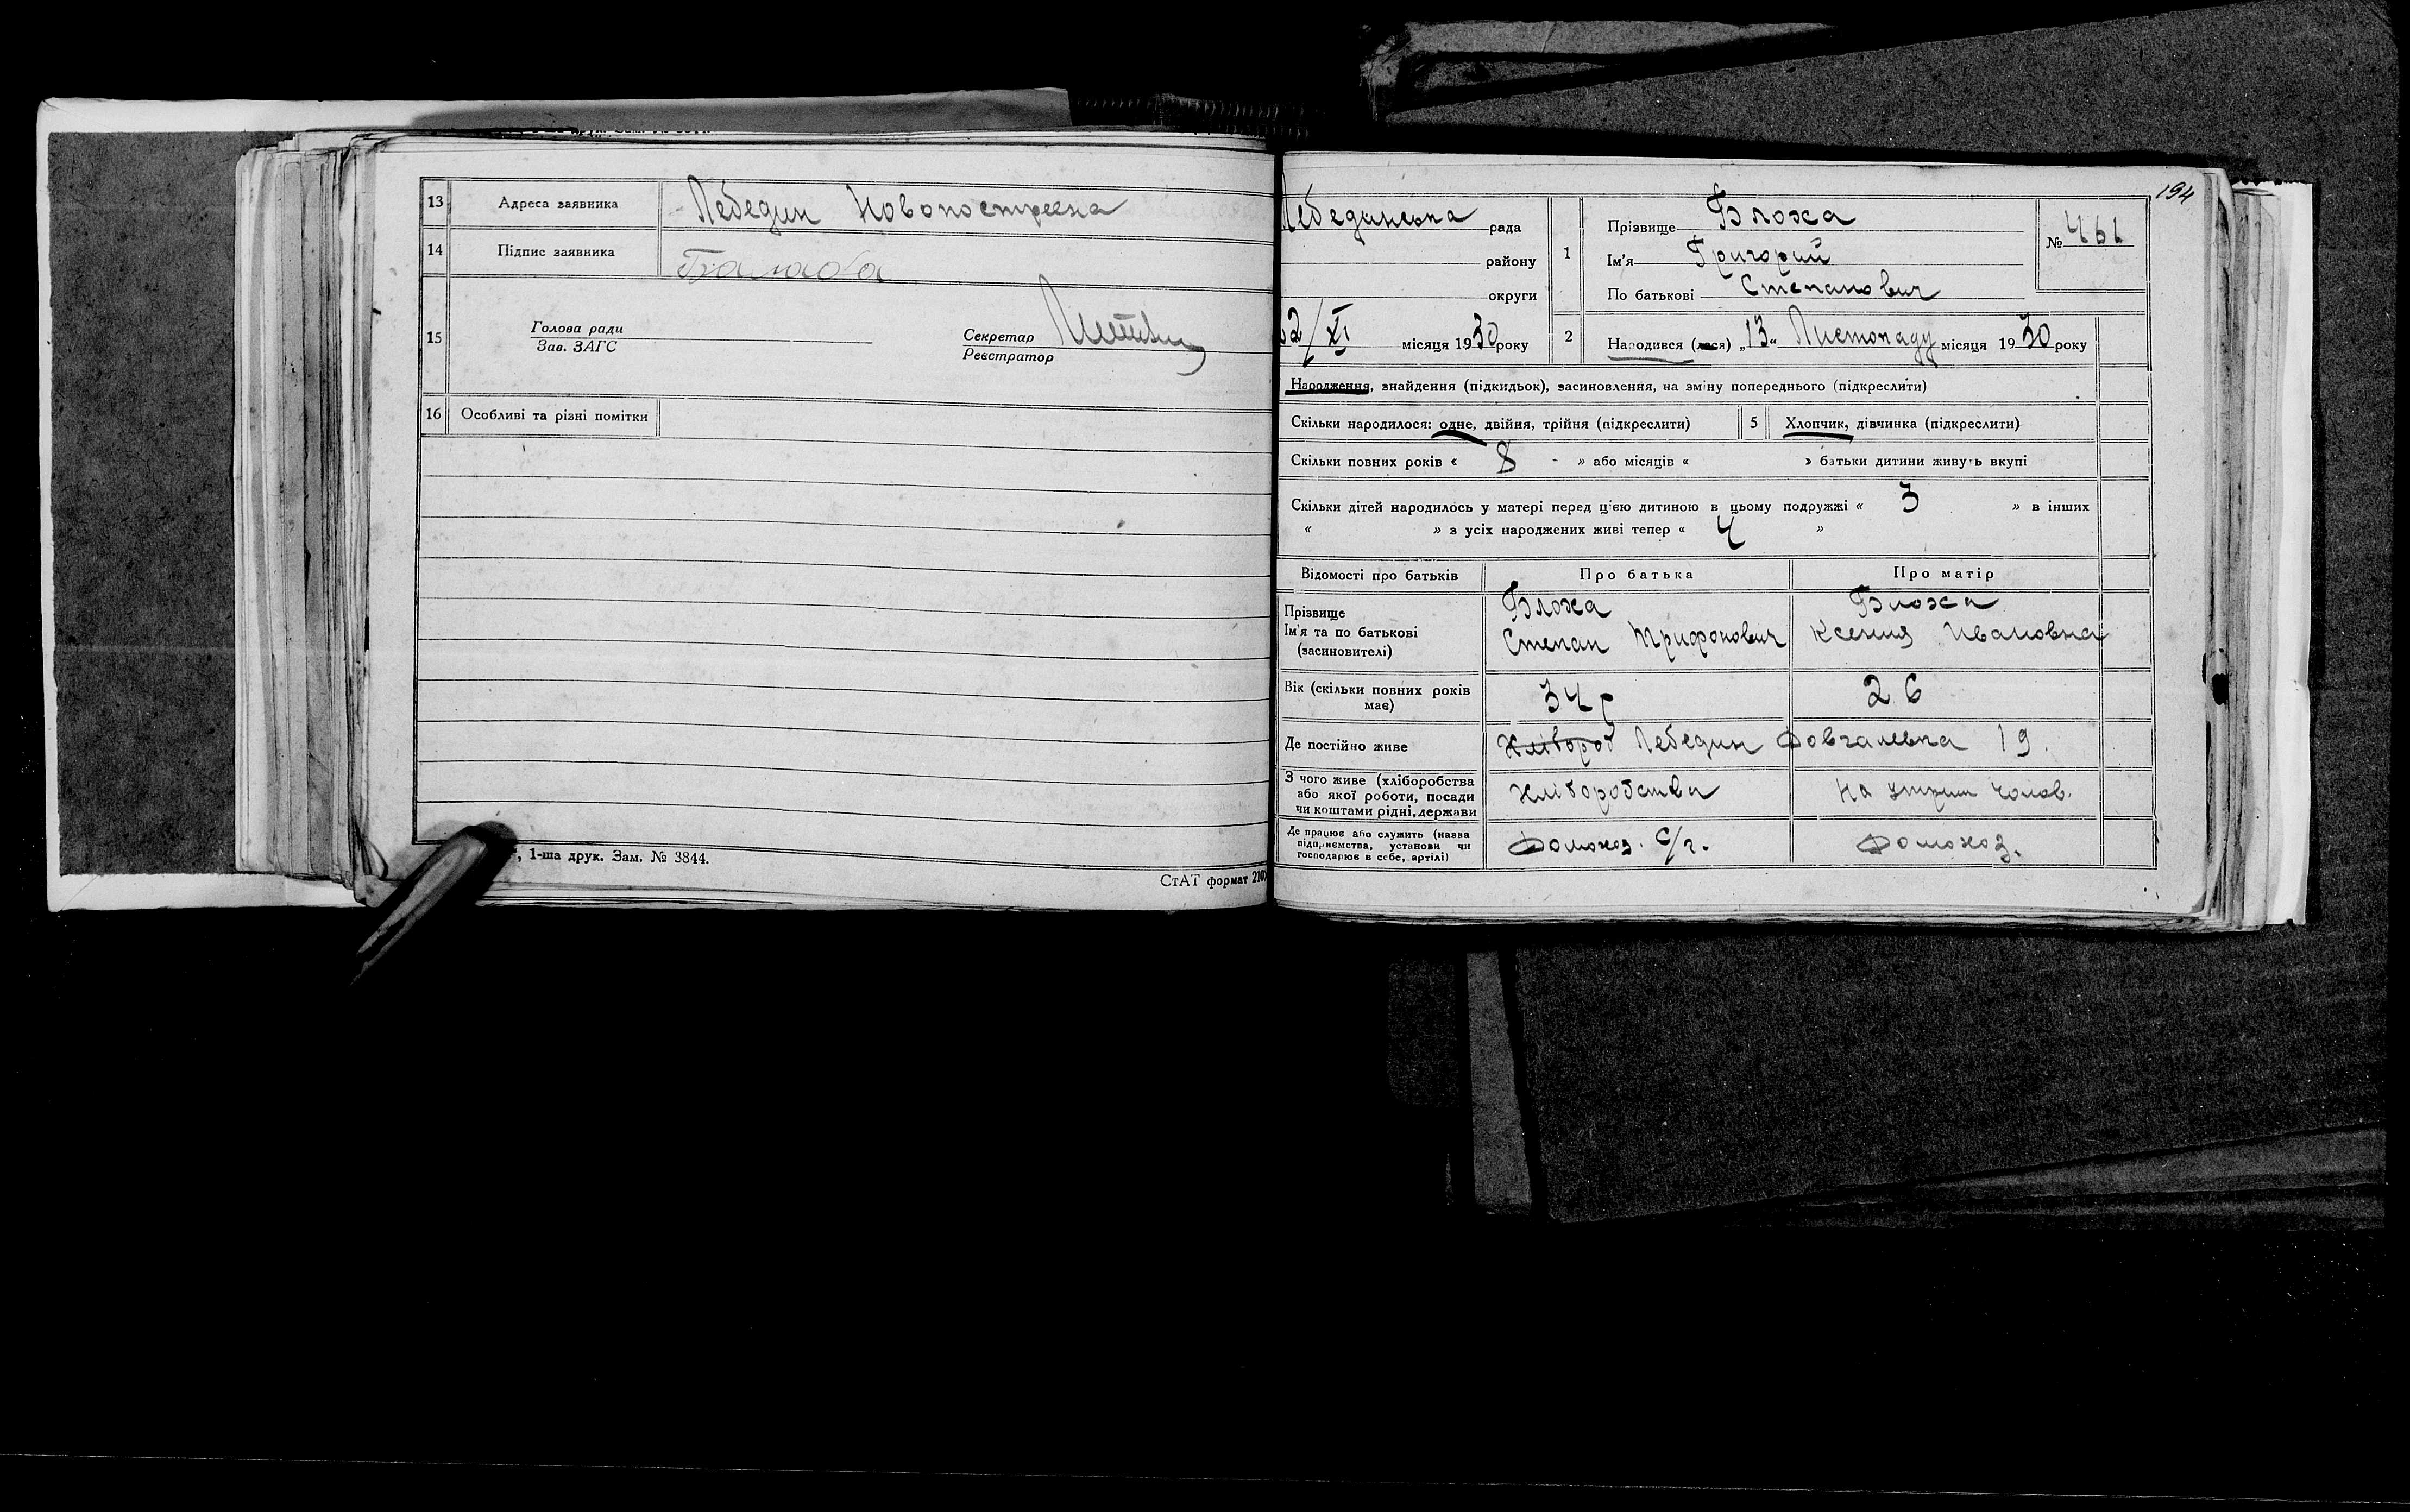 13 Адреса заявника Лебедин Новопостреєна
14 Підпис заявника
15 Голова ради
Зав. ЗАГС
Секретар
Реєстратор
16 Особливі та різні помітки
, 1-ша друк. Зам. № 3844.
СтАТ формат 210
194
Лебединська рада
району
округи
1 Прізвище Блоха
Ім'я Григорий
По батькові Степанович
№ 461
2/XI місяця 1930 року
2 Народився (лася) „13“ Листопаду місяця 1930 року
Народження, знайдення (підкидьок), засиновлення, на зміну попереднього (підкреслити)
Скільки народилося: одне, двійня, трійня (підкреслити)
5 Хлопчик, дівчинка (підкреслити)
Скільки повних років « 8 - » або місяців « » батьки дитини живуть вкупі
Скільки дітей народилось у матері перед цією дитиною в цьому подружжі « 3 » в інших
« » з усіх народжених живі тепер « 4 »
Відомості про батьків Про батька Про матір
Прізвище Блоха Блоха
Ім'я та по батькові Степан Трифонович Ксения Ивановна
(засиновителі)
Вік (скільки повних років має) 34 р 26
Де постійно живе Хлібороб Лебедин Довгалевка 19.
З чого живе (хліборобства
або якої роботи, посади
чи коштами рідні, держави
Хліборобства На утрим чолов.
Де працює або служить (назва
підприємства, установи чи
господарює в себе, артілі)
Домохоз. С/г. Домохоз.